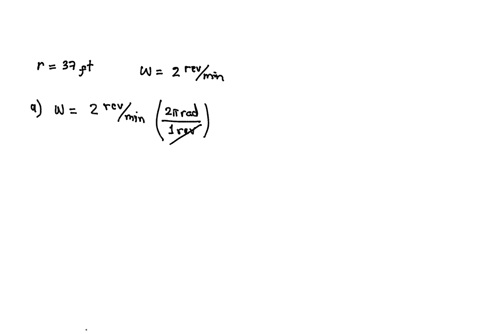 r = 37 ft    w = 2 rev/min
a) w = 2 rev/min (2π rad / 1 rev)